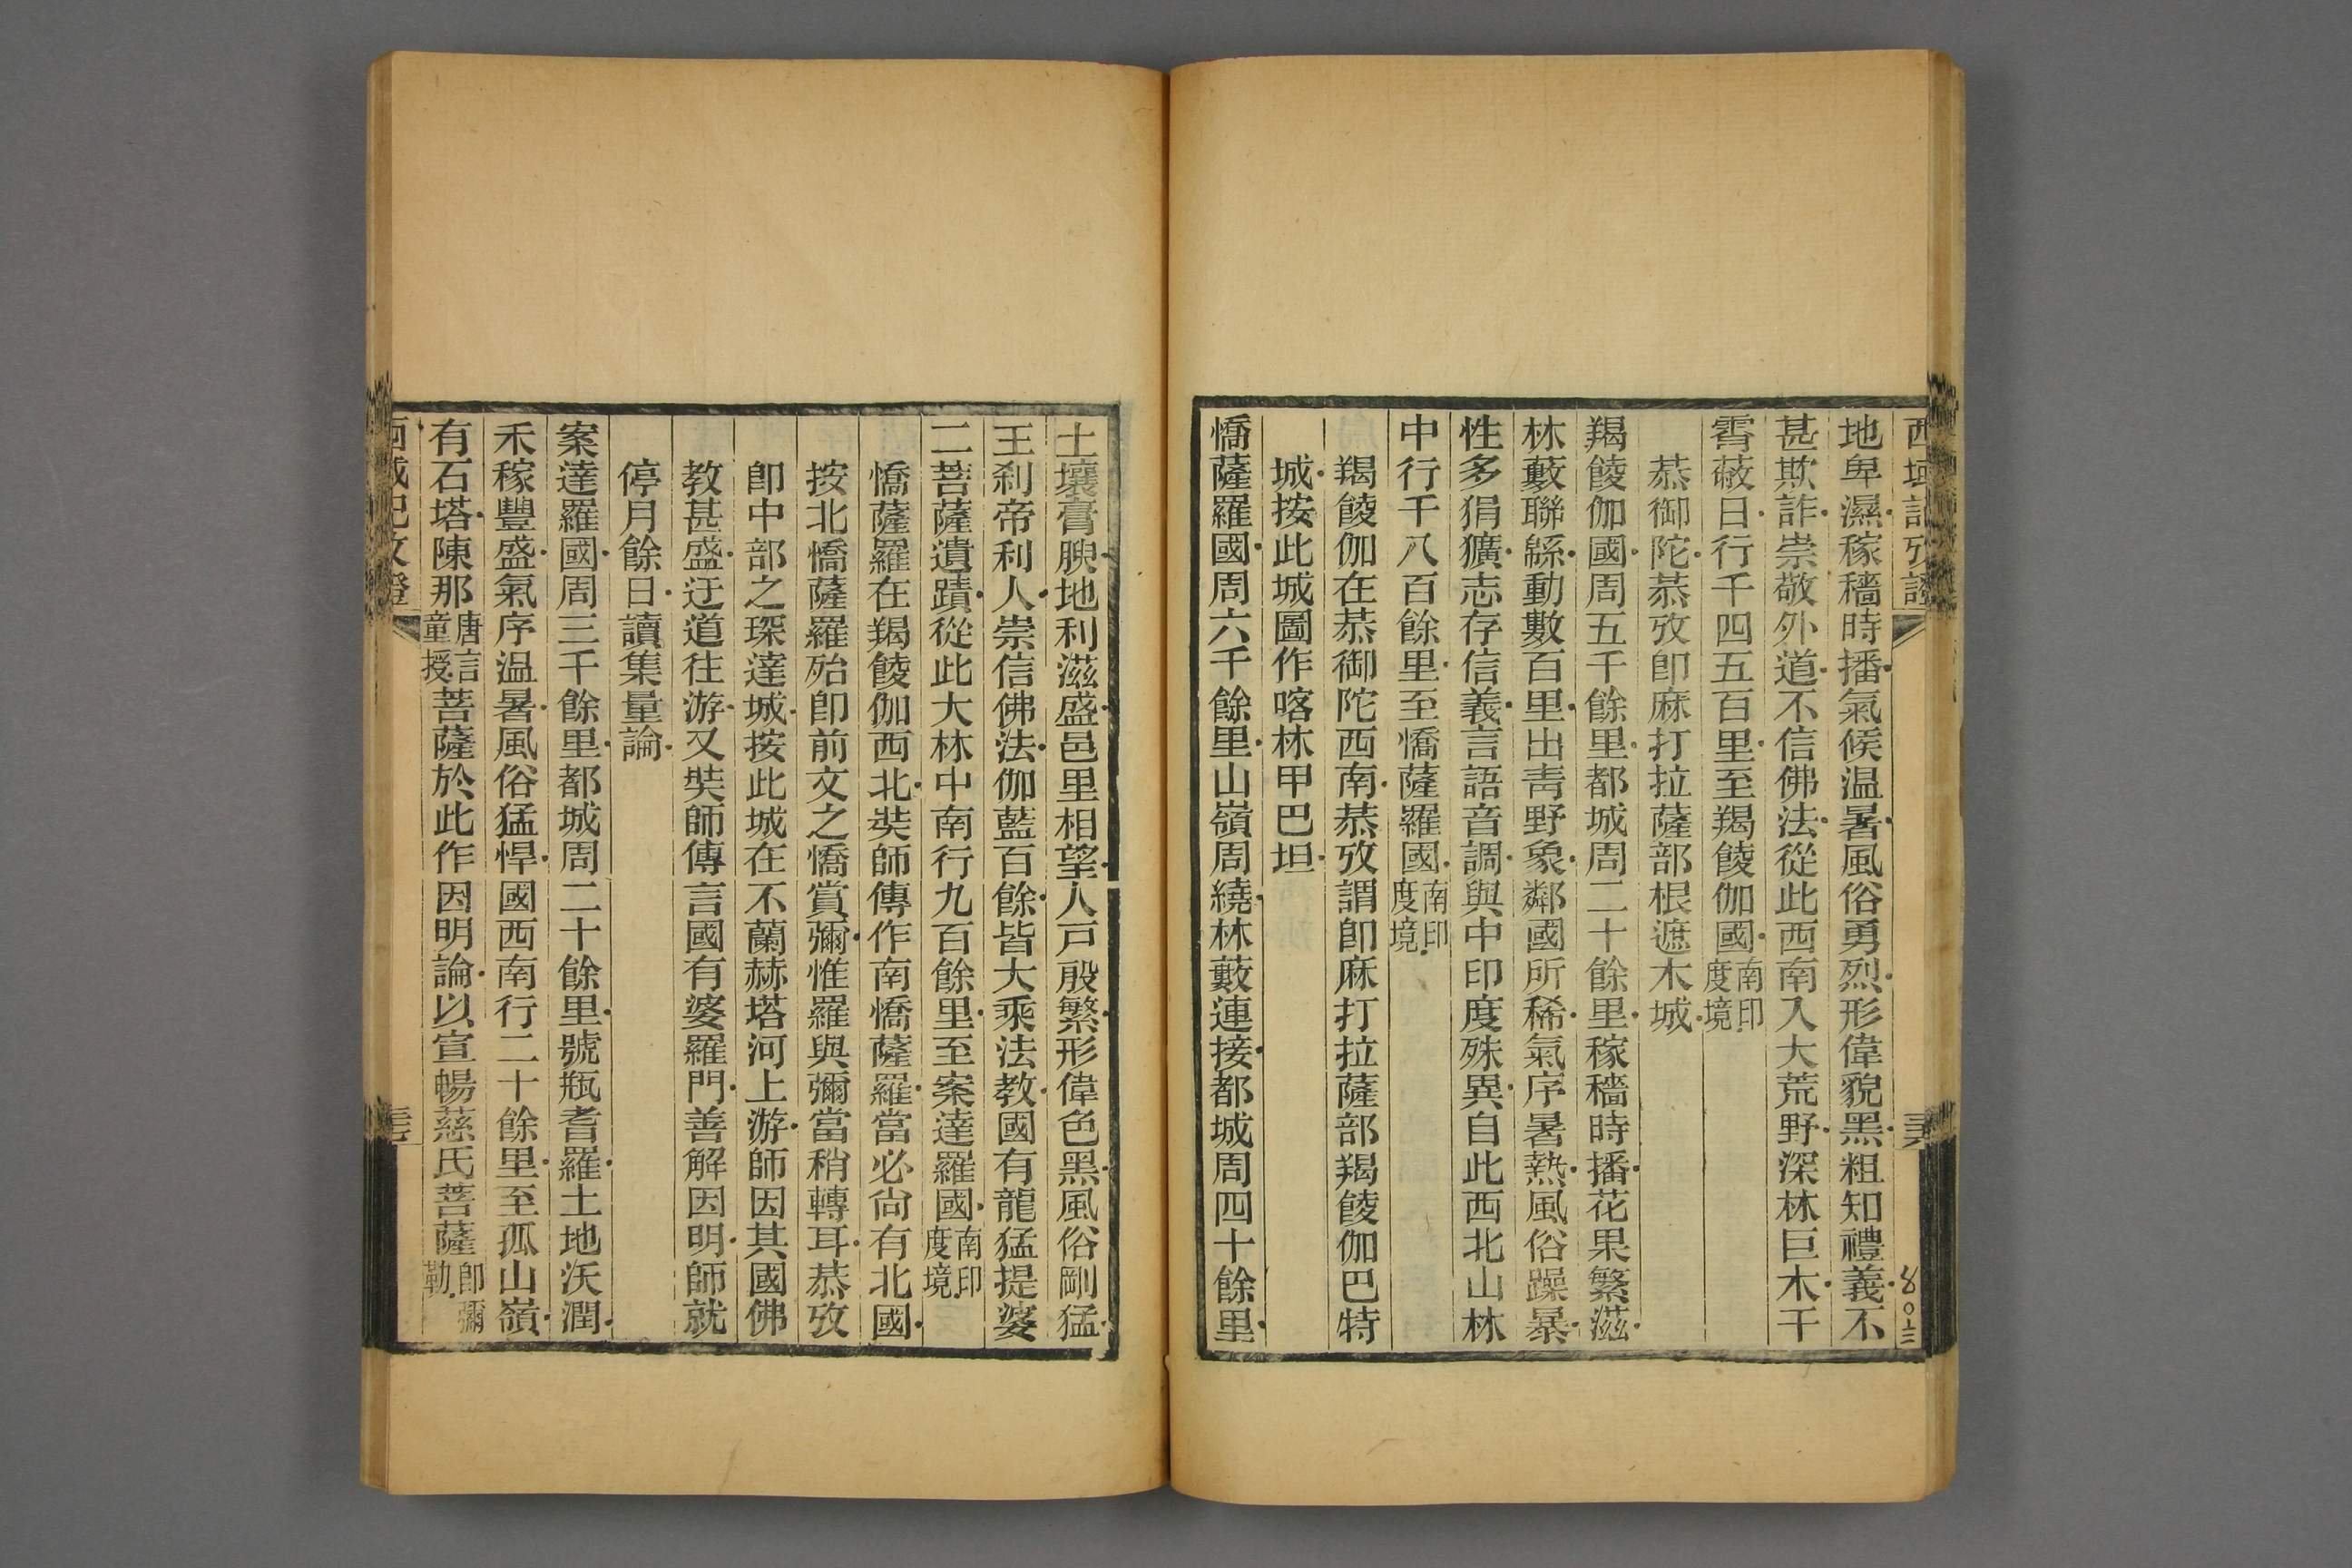 西域記攷證
地卑濕稼穡時播氣候温暑風俗勇烈形偉貌黑粗知禮義不
甚欺詐崇敬外道不信佛法從此西南入大荒野深林巨木干
霄蔽日行千四五百里至羯餕伽國南印度境
恭御陀恭攷卽麻打拉薩部根遮木城
羯餕伽國周五千餘里都城周二十餘里稼穡時播花果繁滋
林藪聯緜動數百里出靑野象鄰國所稀氣序暑熱風俗躁暴
性多狷獷志存信義言語音調與中印度殊異自此西北山林
中行千八百餘里至憍薩羅國南印度境
羯餕伽在恭御陀西南恭攷謂卽麻打拉薩部羯餕伽巴特
城按此城圖作喀林甲巴坦
憍薩羅國周六千餘里山嶺周繞林藪連接都城周四十餘里
土壤膏腴地利滋盛邑里相望人戸殷繁形偉色黑風俗剛猛
王刹帝利人崇信佛法伽藍百餘皆大乘法教國有龍猛提婆
二菩薩遺蹟從此大林中南行九百餘里至案達羅國南印度境
憍薩羅在羯餕伽西北奘師傳作南憍薩羅當必尙有北國
按北憍薩羅殆卽前文之憍賞彌惟羅與彌當稍轉耳恭攷
卽中部之琛達城按此城在不蘭赫塔河上游師因其國佛
教甚盛迂道往游又奘師傳言國有婆羅門善解因明師就
停月餘日讀集量論
案達羅國周三千餘里都城周二十餘里號瓶耆羅土地沃潤
禾稼豐盛氣序温暑風俗猛悍國西南行二十餘里至孤山嶺
有石塔陳那唐言童授菩薩於此作因明論以宣暢慈氏菩薩卽彌勒
西域記攷證